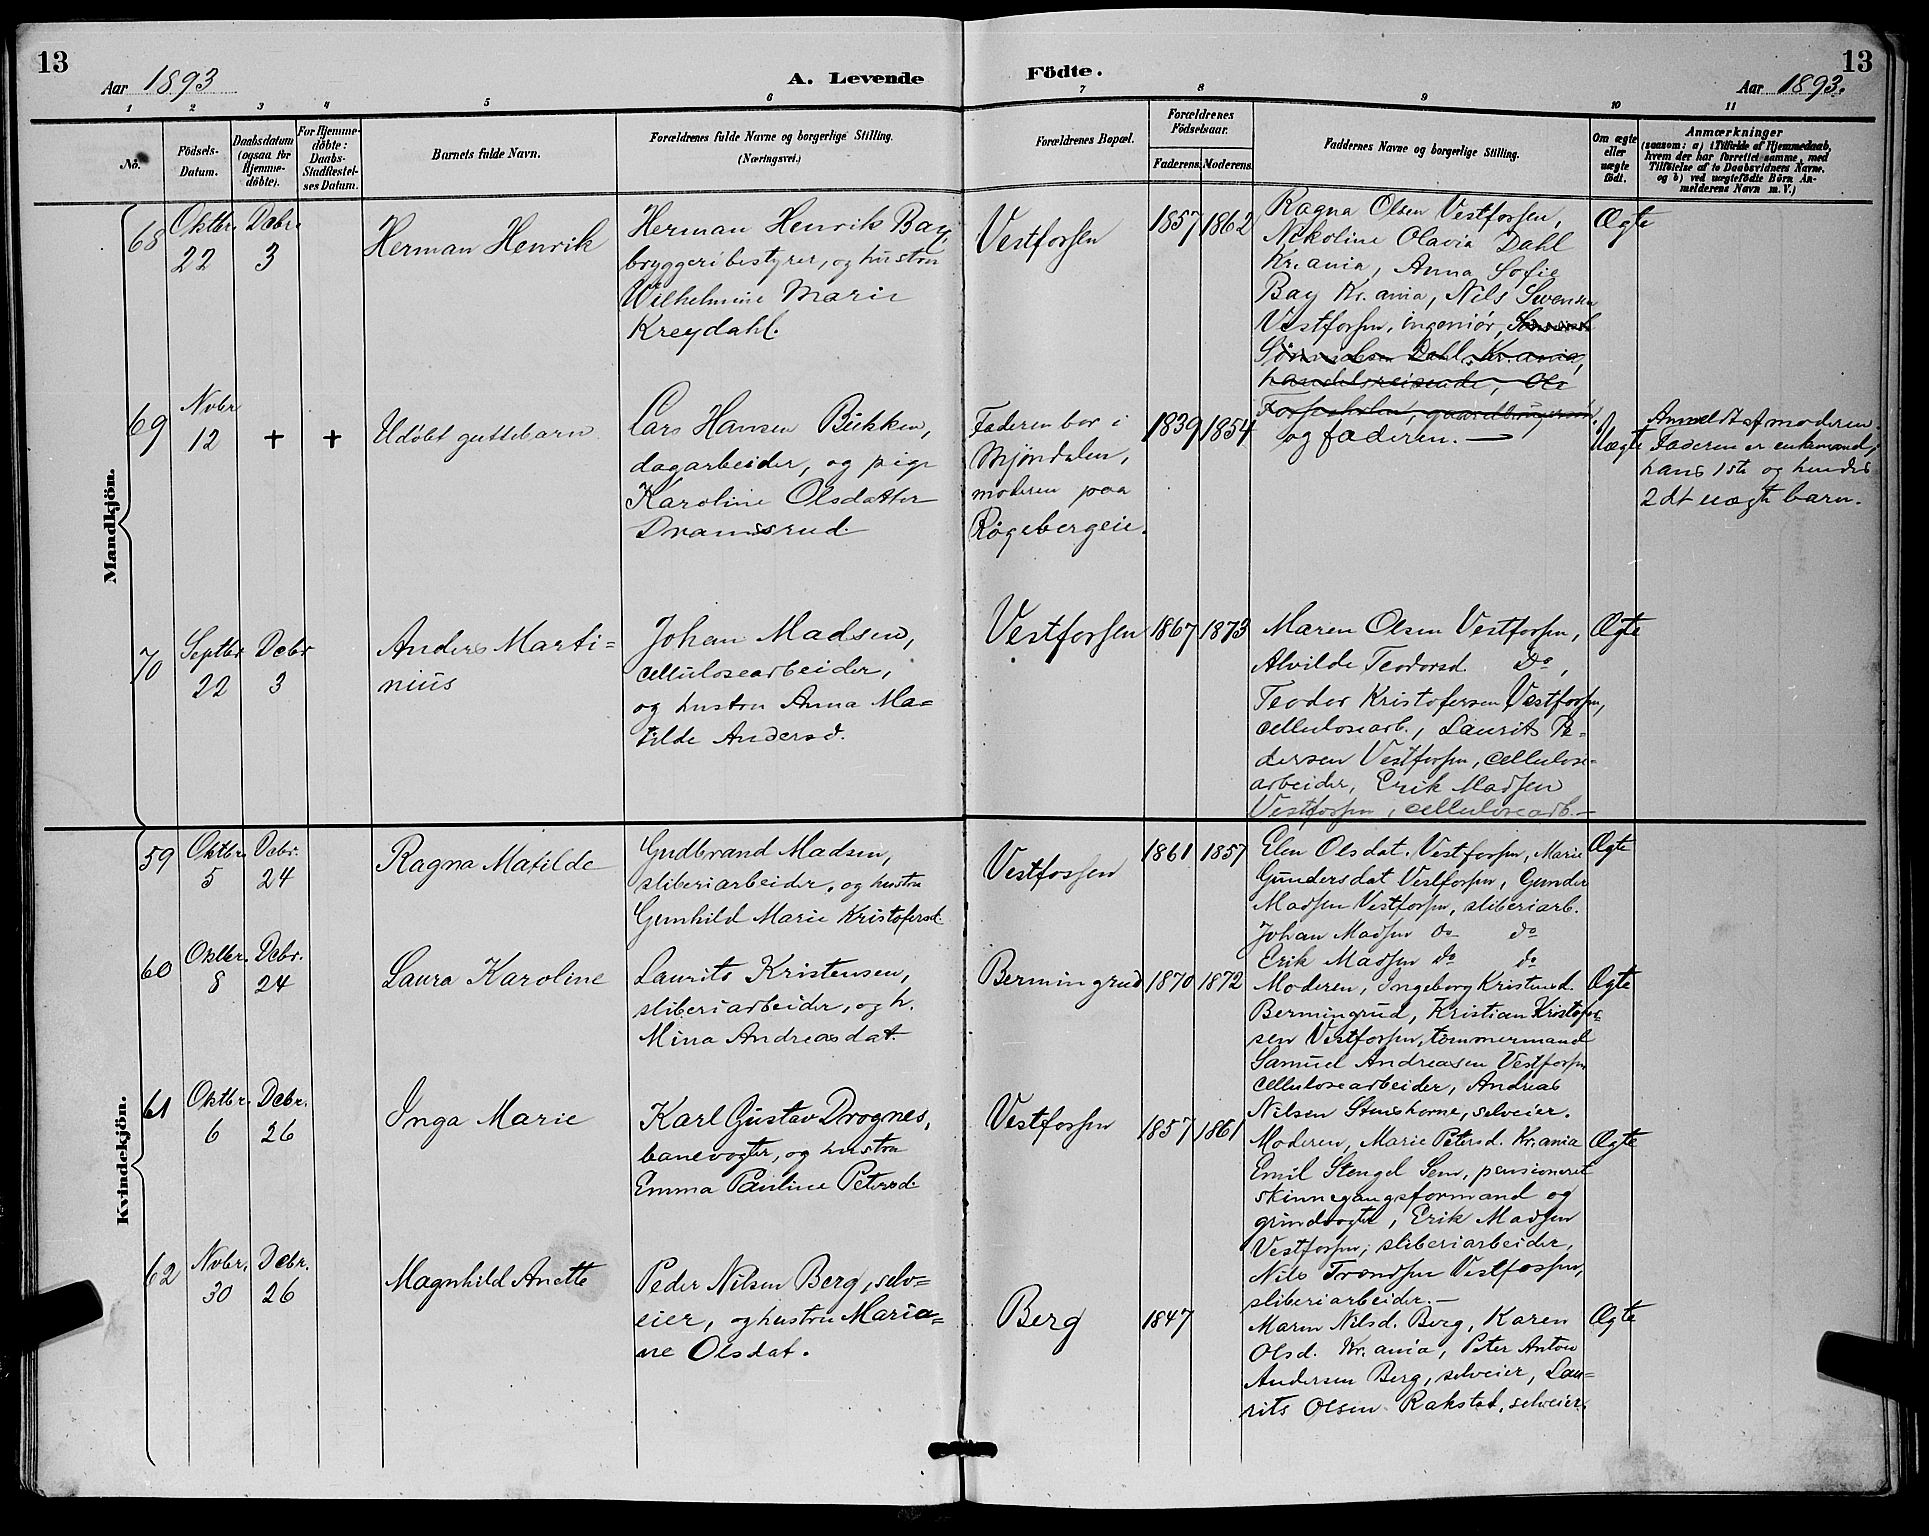 13
Aar 1893
A. Levende
Födte.
Aar 1893.
13
1 2 3 4 5 6 7 8 9 10 11
No.
Födsels-
Datum.
Daabsdatum
(ogsaa for
Hjemme-
döbte).
For Hjemme-
döbte:
Daabs-
Stadfæstel-
ses Datum.
Barnets fulde Navn.
Forældrenes fulde Navne og borgerlige Stilling.
(Næringsvei.)
Forældrenes Bopæl.
Forældrenes
Födselsaar.
Faderens. Moderens.
Faddernes Navne og borgerlige Stilling.
Om ægte
eller
uægte
født.
Anmærkninger
(saasom: a) i Tilfælde af Hjemmedaab,
hvem der har forrettet samme, med
Tilföielse af to Daabsvidners Navne.
og b) ved uægtefödte Börn An-
melderens Navn m. V.)
Mandkjön.
68
Oktbr.
22
Debr.
3
Herman Henrik
Herman Henrik Bay,
bryggeribestyrer, og hustru
Wilhelmine Marie
Kreydahl.
Vestfossen
1857 1862
Ragna Olsen Vestfossen,
Nikoline Olavia Dahl
Kr.ania, Anna Sofie
Bay Kr.ania, Nils Svensen
Vestfossen, ingeniør,
Dahl, Kr.ania,
handelsreisende, Ole
gaardbruger
og faderen. —
Ægte
69
Novbr
12
+
+
Udøbt guttebarn
Lars Hansen Bükken,
dagarbeider, og pige
Karoline Olsdatter
Dramsrud.
Faderen bor i
Mjøndalen,
moderen paa
Røgebergeie.
1839 1854
Uægte
Anmeldt af moderen.
Faderen er enkemand;
hans 1ste og hendes
2det uægte barn.
70
Septbr
22
Debr
3
Anders Marti-
nius
Johan Madsen,
cellulosearbeider,
og hustru Anna Ma-
tilde Andersd.
Vestfossen
1867 1873
Maren Olsen Vestfossen,
Alvilde Teodorsd. Do,
Teodor Kristofersen Vestfossen,
cellulosearb., Laurits Pe-
dersen Vestfossen, cellulose-
arbeider, Erik Madsen
Vestfossen, cellulosearb. —
Ægte
Kvindekjön.
59
Oktbr.
5
Debr.
24
Ragna Matilde
Gudbrand Madsen,
sliberiarbeider, og hustru
Gunhild Marie Kristofersd.
Vestfossen
1861 1857
Elen Olsdat. Vestfossen, Marie
Gundersdat Vestfossen, Gunder
Madsen Vestfossen, sliberiarb.
Johan Madsen do do
Erik Madsen do do
Ægte
60
Oktbr.
8
Debr.
24
Laura Karoline
Laurits Kristensen,
sliberiarbeider, og h.
Mina Andreasdat.
Bermingrud
1870 1872
Moderen, Ingeborg Kristensd.
Bermingrud, Kristian Kristofer-
sen Vestfossen, tømmermand
Samuel Andreasen Vestfossen
cellulosearbeider, Andreas
Nilsen Stenshorne, selveier.
Ægte
61
Oktbr.
6
Debr.
26
Inga Marie
Karl Gustav Drognes,
banevogter, og hustru
Emma Pauline Petersd.
Vestfossen
1857 1861
Moderen, Marie Petersd. Kr.ania
Emil Stengel Sem, pensioneret
skinnegangsformand og
grindvogter, Erik Madsen
Vestfossen, sliberiarbeider,
Nils Trondsen Vestfossen,
sliberiarbeider. —
Ægte
62
Novbr.
30
Debr.
26
Magnhild Anette
Peder Nilsen Berg, selv-
eier, og hustru Maria-
ne Olsdat.
Berg
1847
Maren Nilsd. Berg, Karen
Olsd. Kr.ania, Peter Anton
Andersen Berg, selveier, Lau-
rits Olsen Rakstad, selveier.
Ægte